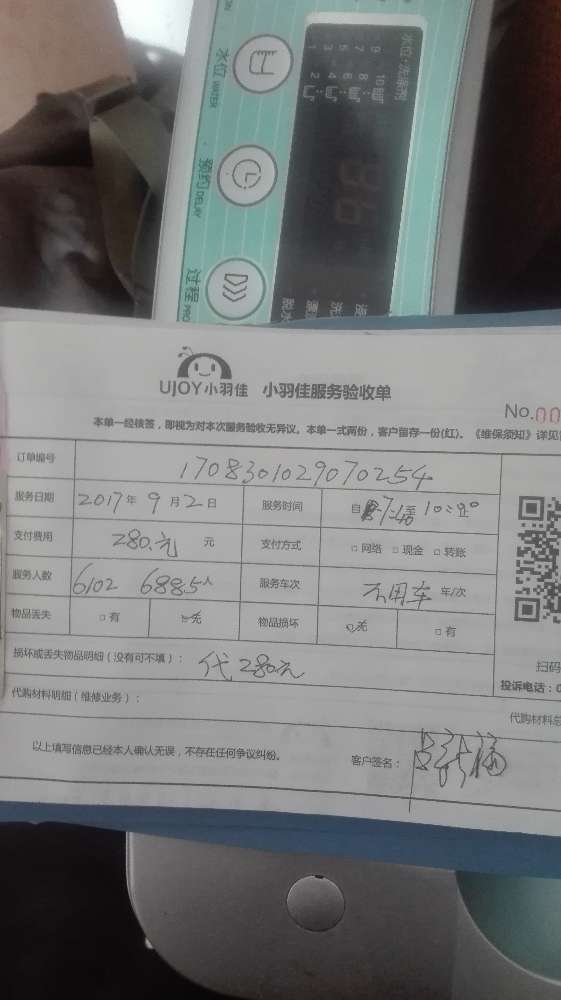 水位 WATER
预约 DELAY
过程
水位·洗涤剂
9 10
7 8
5 6
3 4
1 2
脱水
UJOY小羽佳 小羽佳服务验收单
No.00
本单一经接签，即视为对本次服务验收无异议。本单一式两份，客户留存一份(红)。《维保须知》详见
订单编号 1708301029070254
服务日期 2017年9月2日 服务时间 自 7:40至10:00止
支付费用 280.元 元 支付方式 □网络 □现金 □转账
服务人数 6102 6885人 服务车次 不用车 车/次
物品丢失 □有 □无 物品损坏 □无 □有
扫码
损坏或丢失物品明细（没有可不填）： 代280元
投诉电话：0
代购材料明细（维修业务）：
代购材料总
以上填写信息已经本人确认无误，不存在任何争议纠纷。 客户签名：